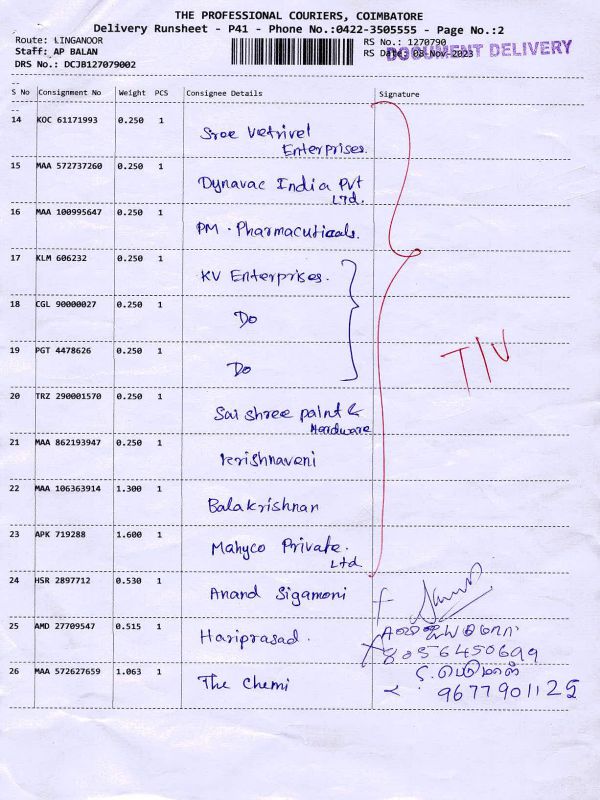 THE PROFESSIONAL COURIERS, COIMBATORE
Delivery Runsheet - P41 - Phone No.:0422-3505555 - Page No.:2
Route: LINGANOOR
Staff: AP BALAN
DRS No.: DCJB127079002
RS No.: 1270790
RS Date: 08-Nov-2023
DOCUMENT DELIVERY
S No Consignment No Weight PCS Consignee Details Signature
14 KOC 61171993 0.250 1
Sree Vetrivel
Enterprises.
15 MAA 572737260 0.250 1
Dynavac India Pvt
Ltd.
16 MAA 100995647 0.250 1
PM. Pharmacuticals.
17 KLM 606232 0.250 1
KV Enterprises.
18 CGL 90000027 0.250 1
Do
19 PGT 4478626 0.250 1
Do
T/V
20 TRZ 290001570 0.250 1
Sai shree paint &
Hardware
21 MAA 862193947 0.250 1
Krishnaveni
22 MAA 106363914 1.300 1
Balakrishnan
23 APK 719288 1.600 1
Mahyco Private.
Ltd
24 HSR 2897712 0.530 1
Anand Sigamoni
25 AMD 27709547 0.515 1
Hariprasad.
8056450699
26 MAA 572627659 1.063 1
The Chemi
9677901125